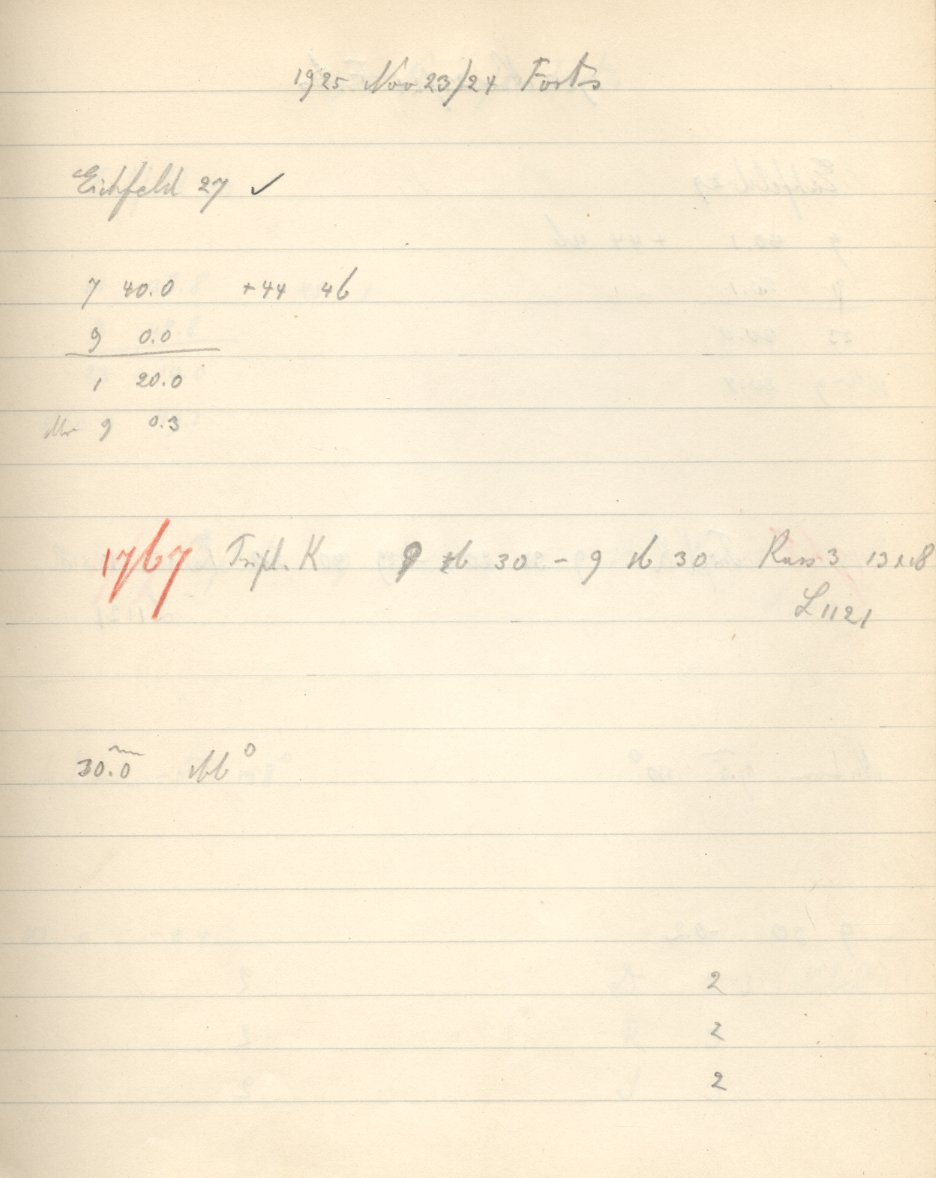 1925 Nov 23/24 Forts
Eichfeld 27 ✓
7 40.0 +44 46
9 0.0
1 20.0
9 0.3
1767 Tripl. K 9 16 30 - 9 16 30 Russ 3 13x18
L 1121
30.0 m
2
2
2